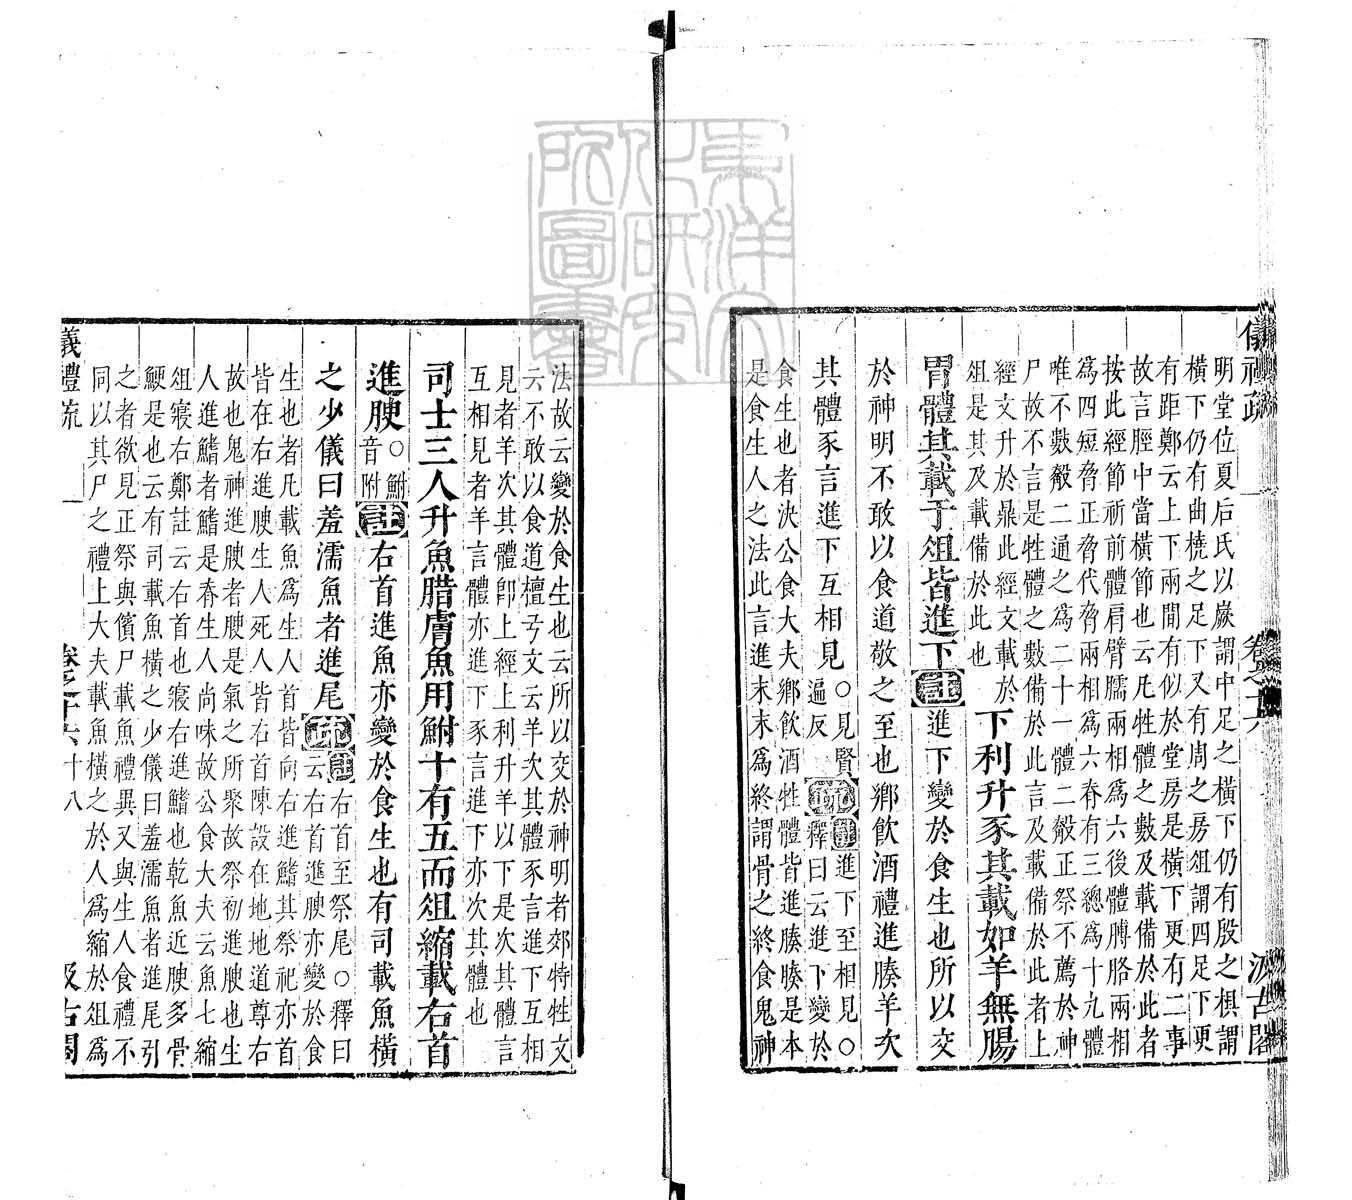 儀禮疏 卷之十六 汲古閣
明堂位夏后氏以嶡謂中足之橫下仍有殷之椇謂
橫下仍有曲橈之足下又有周之房俎謂四足下更
有距鄭云上下兩間有似於堂房是橫下更有二事
故言脛中當橫節也云凡牲體之數及載備於此者
按此經節祈前體肩臂臑兩相爲六後體膊胳兩相
爲四短脅正脅代脅兩相爲六脊有三總爲十九體
唯不數觳二通之爲二十一體二觳正祭不薦於神
尸故不言是牲體之數備於此言及載備於此者上
經文升於鼎此經文載於
俎是其及載備於此也
下利升豕其載如羊無腸
胃體其載于俎皆進下註進下變於食生也所以交
於神明不敢以食道敬之至也鄉飲酒禮進腠羊次
其體豕言進下互相見○見賢
遍反
疏註進下至相見○
釋曰云進下變於
食生也者決公食大夫鄉飲酒牲體皆進腠腠是本
是食生人之法此言進末末爲終謂骨之終食鬼神
法故云變於食生也云所以交於神明者郊特牲文
云不敢以食道檀弓文云羊次其體豕言進下互相
見者羊次其體卽上經上利升羊以下是次其體言
互相見者羊言體亦進下豕言進下亦次其體也
司士三人升魚腊膚魚用鮒十有五而俎縮載右首
進腴○鮒
音附
註右首進魚亦變於食生也有司載魚橫
之少儀曰羞濡魚者進尾疏註右首至祭尾○釋曰
云右首進腴亦變於食
生也者凡載魚爲生人首皆向右進鰭其祭祀亦首
皆在右進腴生人死人皆右首陳設在地地道尊右
故也鬼神進腴者腴是氣之所聚故祭祀進腴也生
人進鰭者鰭是脊生人尚味故公食大夫云魚七縮
俎寢右鄭註云右首也寢右進鰭也乾魚近腴多骨
鯁是也云有司載魚橫之少儀曰羞濡魚者進尾引
之者欲見正祭與儐尸載魚禮異又與生人食禮不
同以其尸之禮上大夫載魚橫之於人爲縮於俎爲
儀禮疏 卷之十六 十八 汲古閣
東洋文
化研究
所圖書